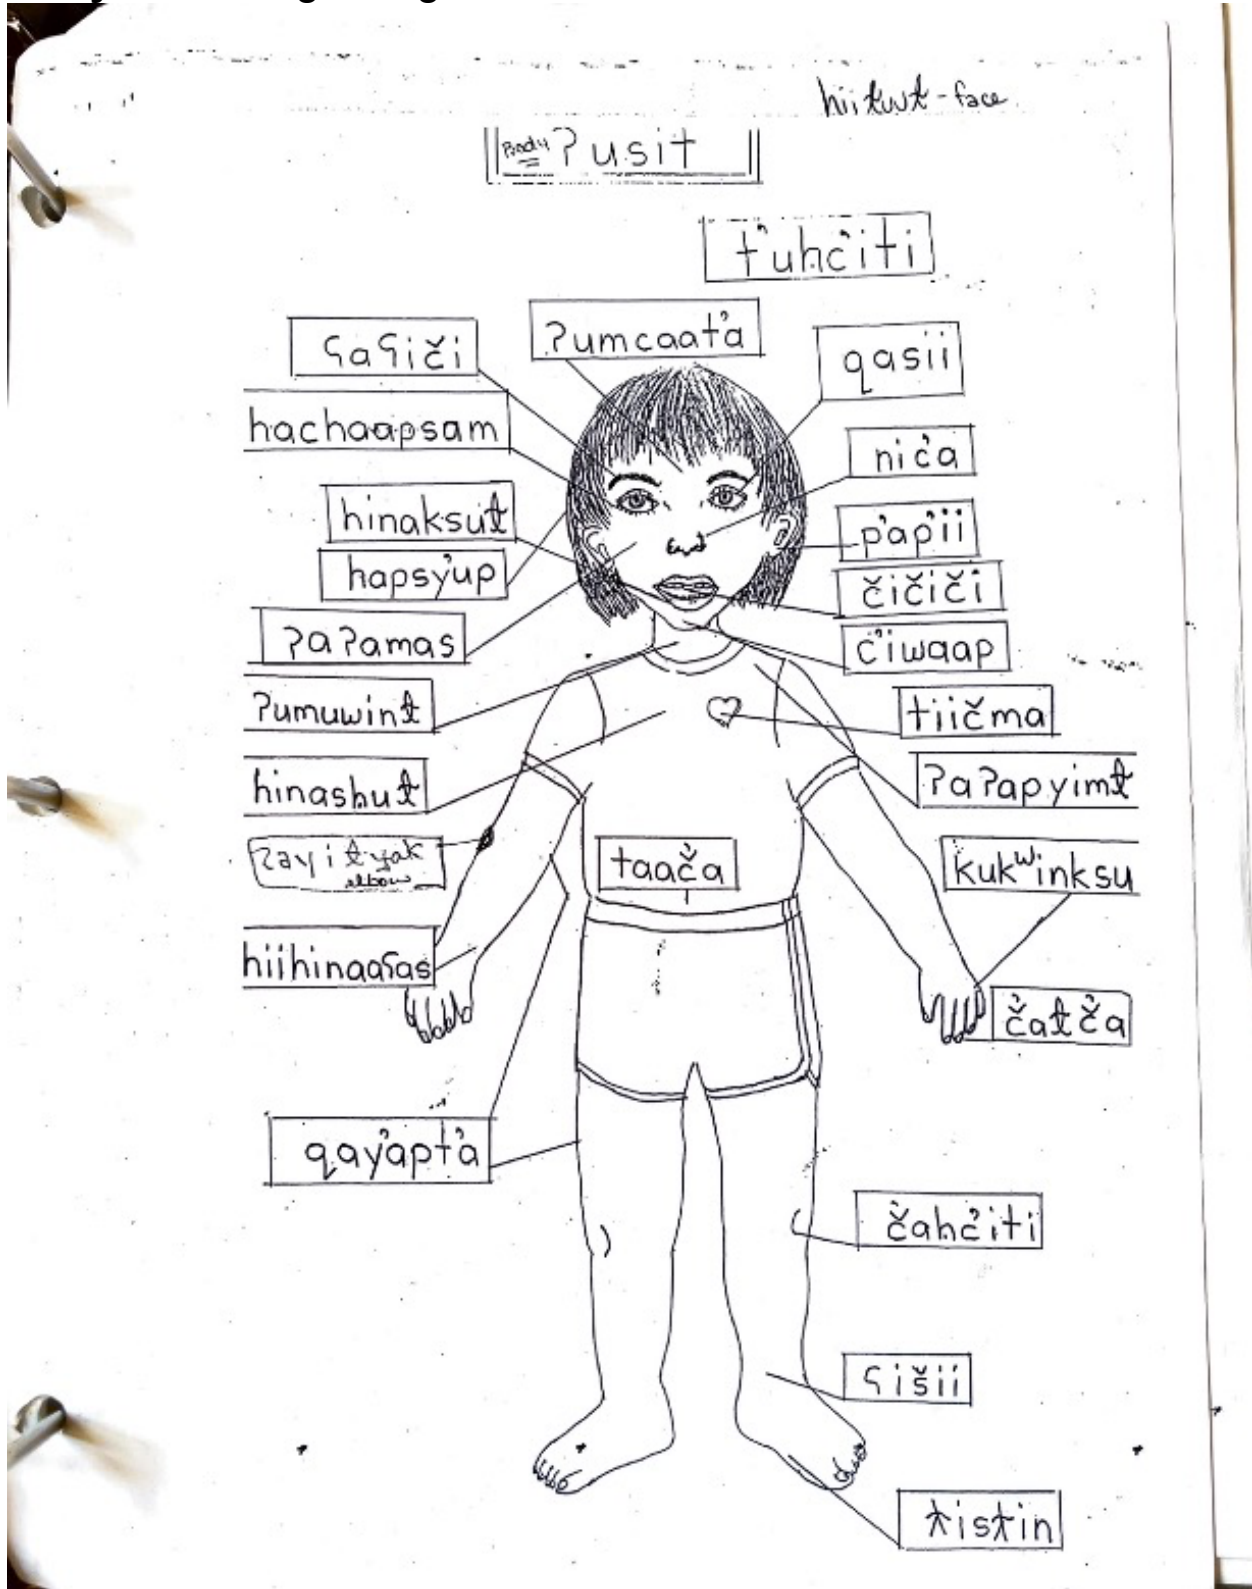 hiiƛuuƛ - face
Body ʔusit
t̓uhc̓iti
ʕaʕiči
ʔumcaat̓a
qasii
hachaapsam
nic̓a
hinaksuƛ
p̓ap̓ii
hapsy̓up
čičiči
ʔaʔamas
c̓iwaap
ʔumuwinƛ
tiičma
hinashuƛ
ʔaʔapyimƛ
ʔayiƛyak
elbow
taač̓a
kukʷinksu
hiihinaaʕas
č̓aƛč̓a
qay̓apt̓a
č̓ahc̓iti
ʕišii
ƛisƛin